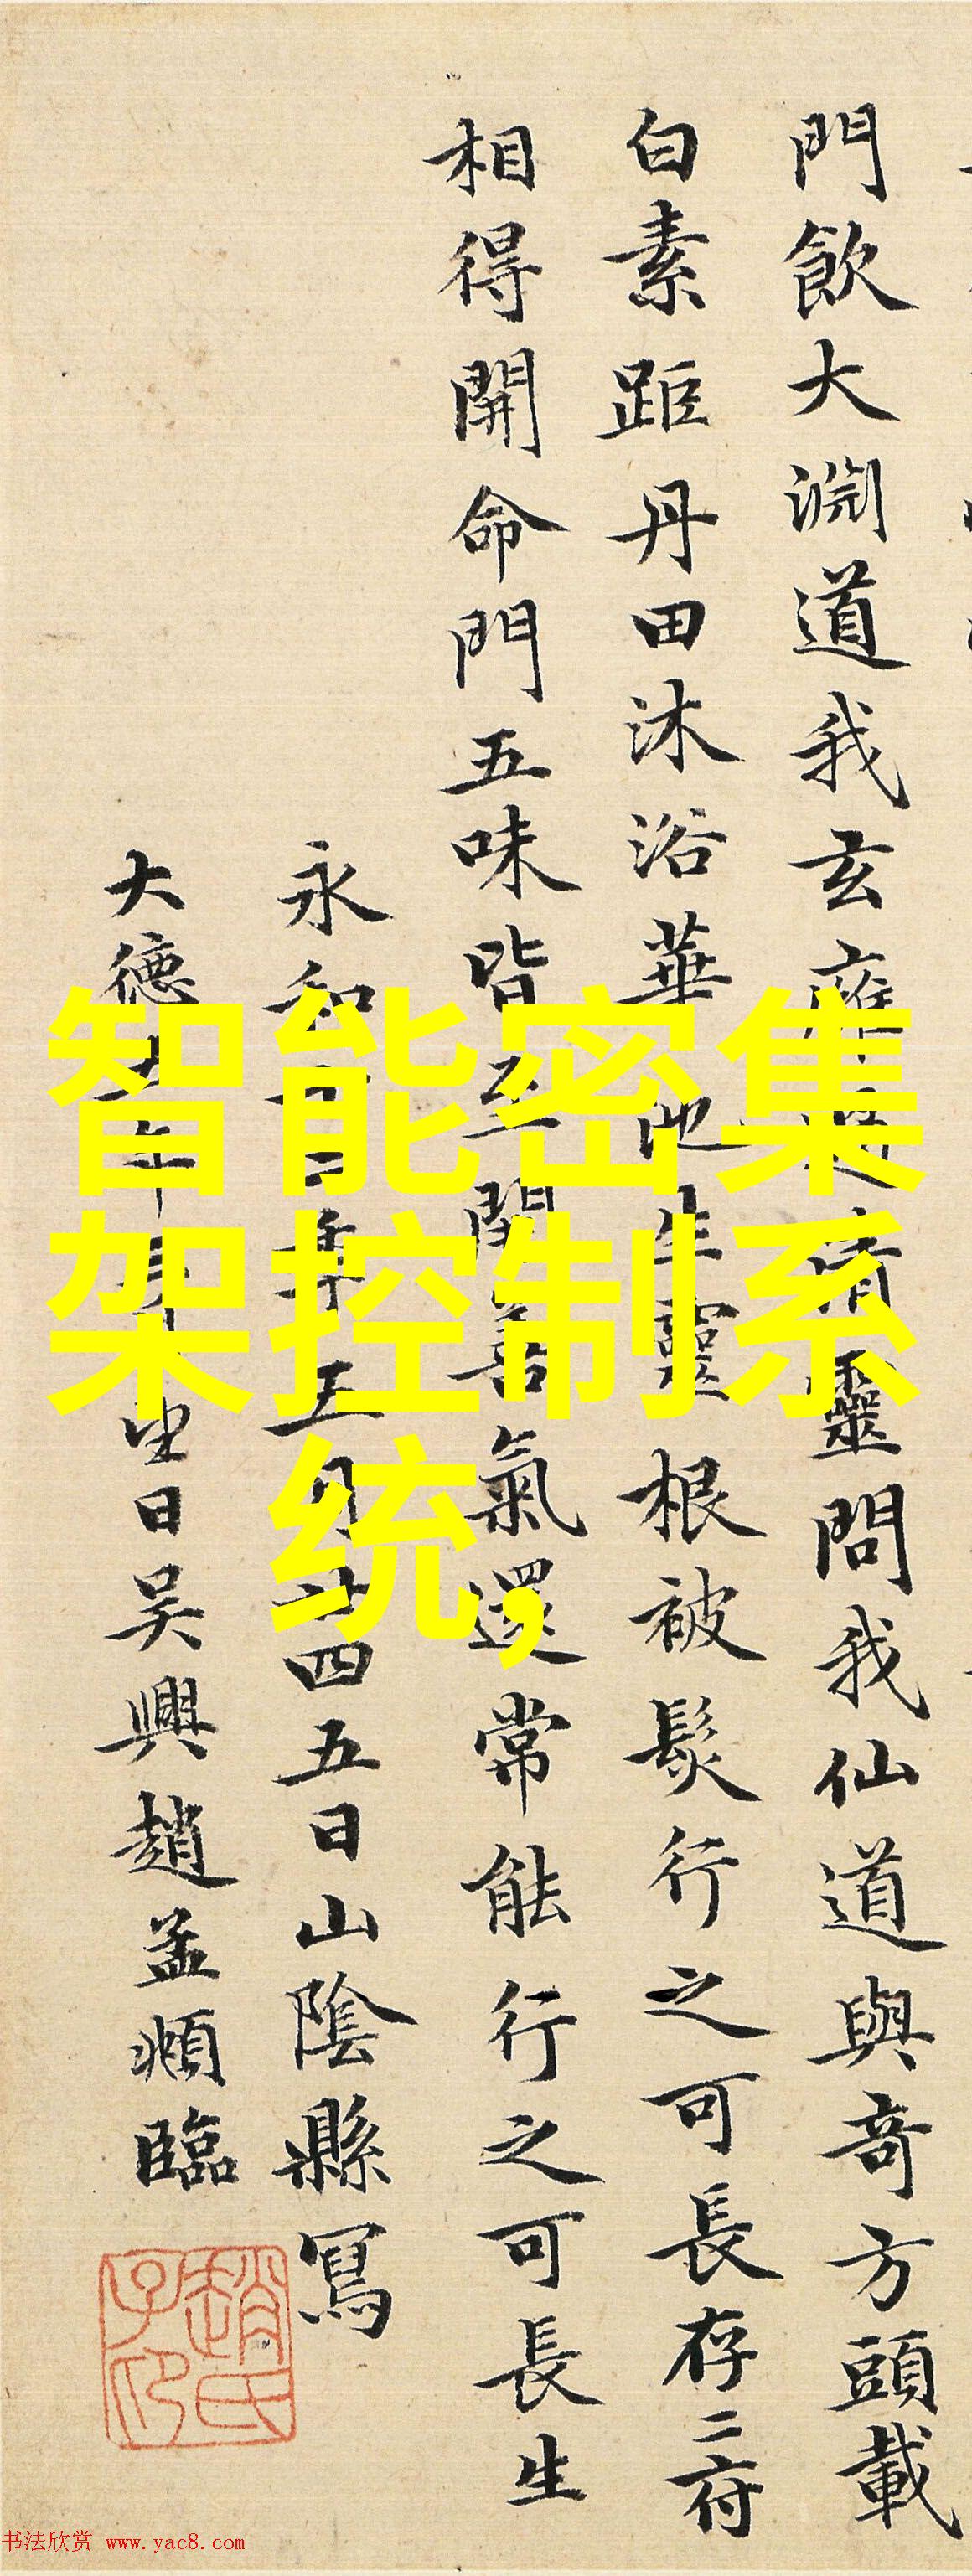 門飲大淵道我玄靈問我仙道與竒方頭載
白素距丹田沐浴華池生靈根被髮行之可長存二府
相得開命門五味皆至開善氣還常能行之可長生
永和十二年五月廿四五日山陰縣寫
大德年月日吳興趙孟頫臨
趙氏子印
智能密集
架控制系
统,
书法欣赏 www.yac8.com